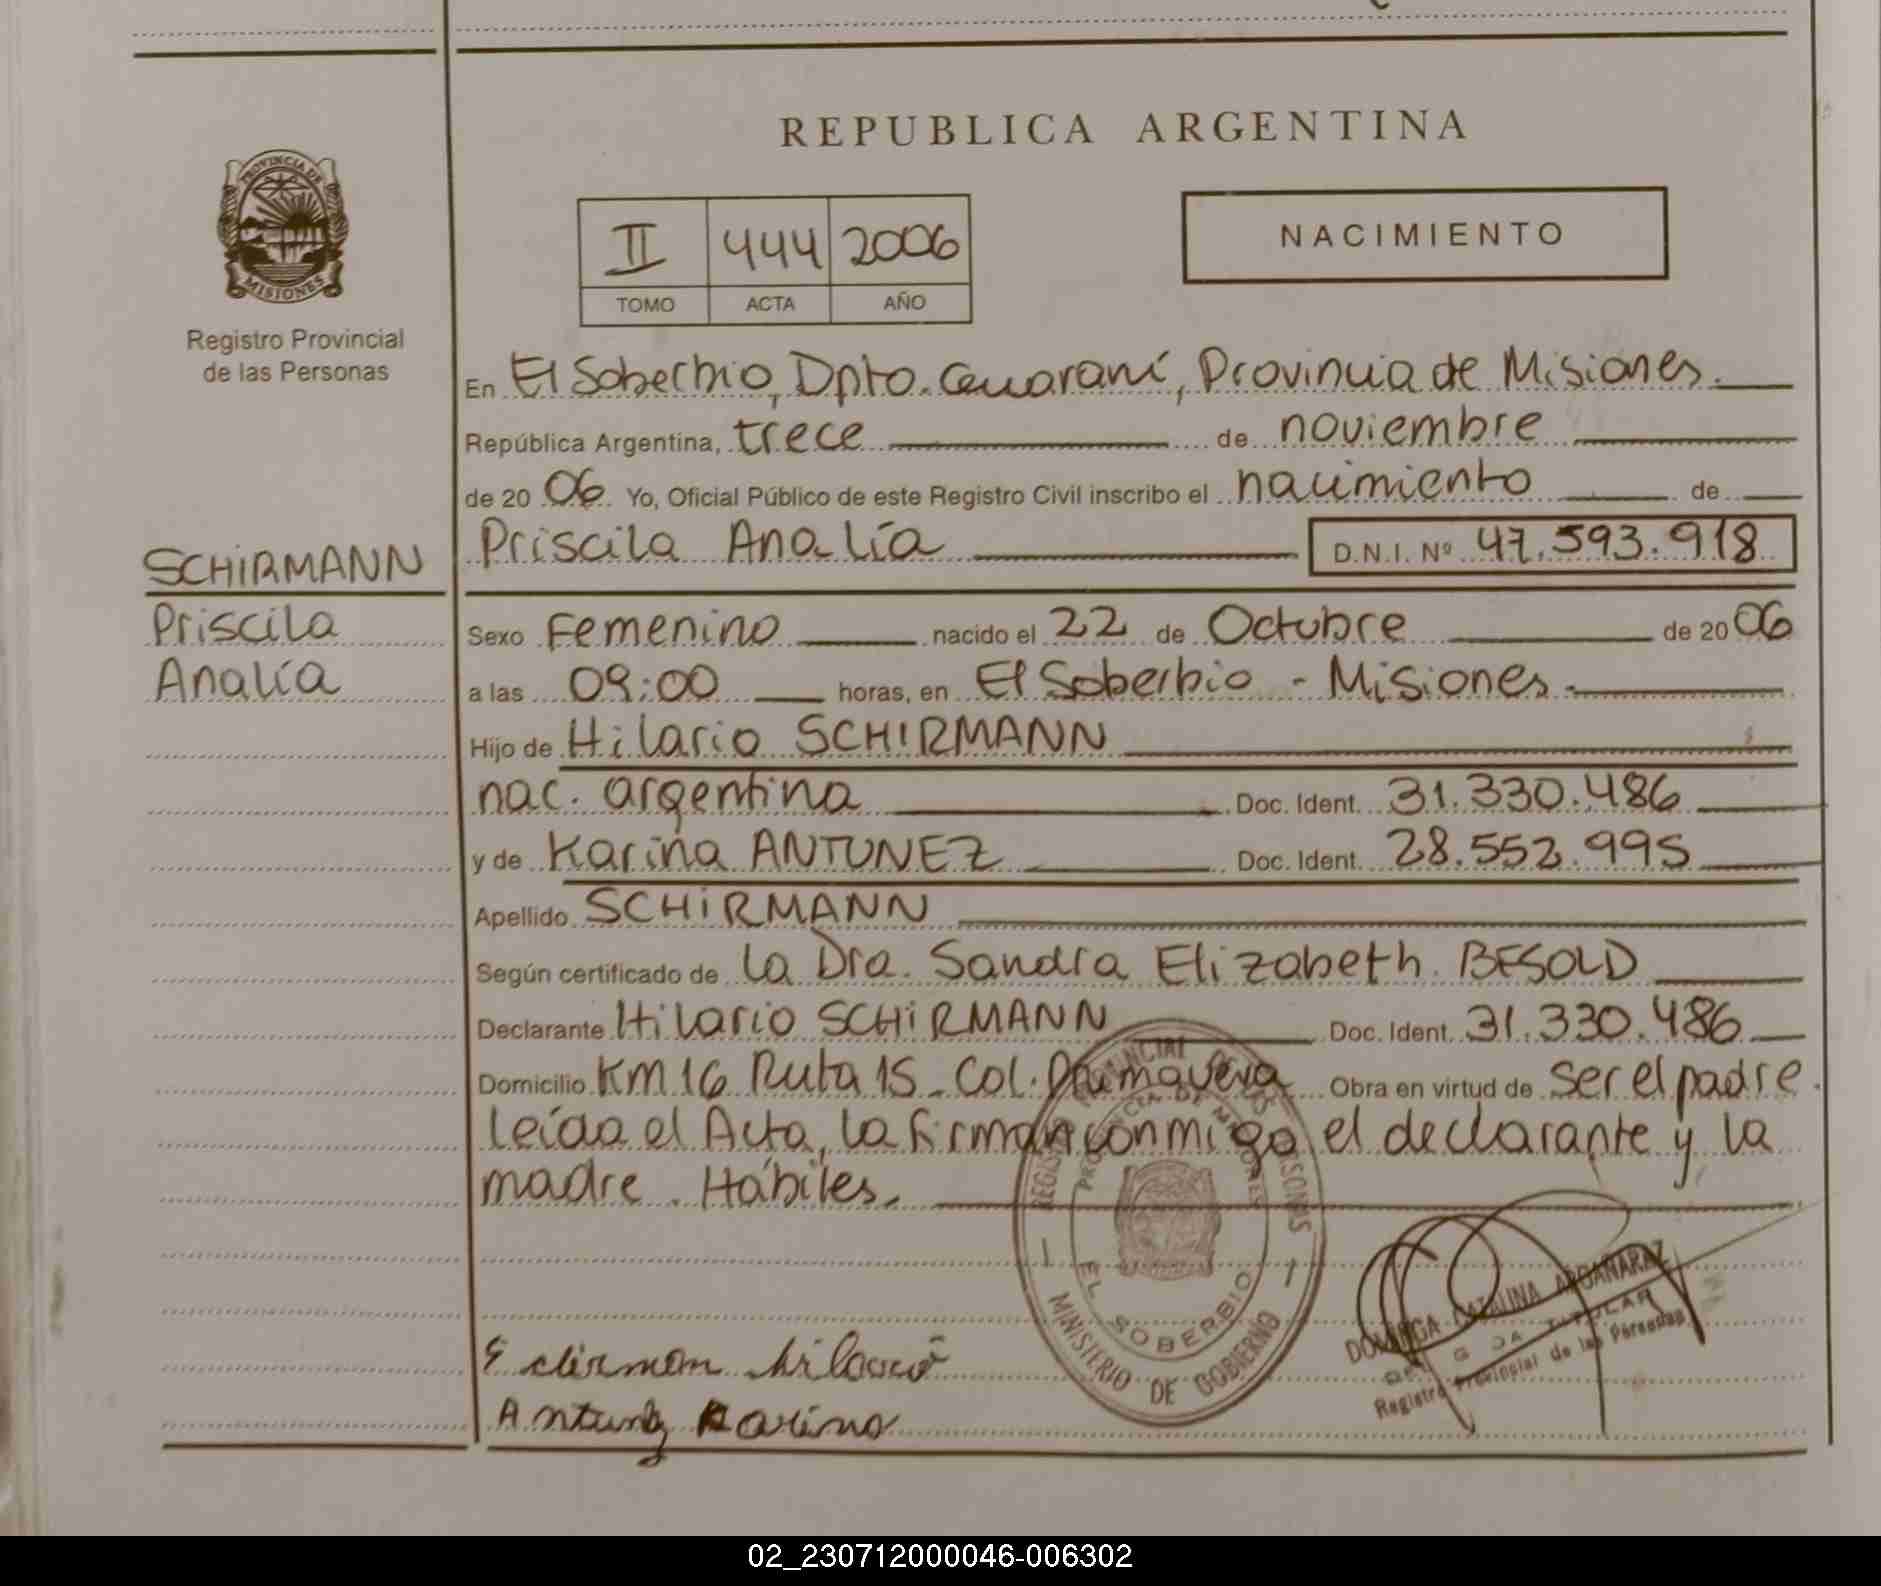 REPUBLICA ARGENTINA
PROVINCIA DE MISIONES
Registro Provincial
de las Personas
II 444 2006
TOMO ACTA AÑO
NACIMIENTO
En El Soberbio, Dpto. Guaraní, Provincia de Misiones.
República Argentina, trece de noviembre
de 2006 Yo, Oficial Público de este Registro Civil inscribo el nacimiento de
SCHiRMANN
Priscila
Analía
Priscila Analía D.N.I. Nº 47.593.918
Sexo Femenino nacido el 22 de Octubre de 2006
a las 09:00 horas, en El Soberbio - Misiones.
Hijo de Hilario SCHIRMANN
nac. argentina Doc. Ident. 31.330.486
y de Karina ANTUNEZ Doc. Ident. 28.552.995
Apellido SCHiRMANN
Según certificado de la Dra. Sandra Elizabeth BESOLD
Declarante Hilario SCHiRMANN Doc. Ident. 31.330.486
Domicilio KM 16 Ruta 15 - Col. Primavera Obra en virtud de ser el padre.
leída el Acta, la firman conmigo el declarante y la
madre. Hábiles.
REGISTRO PROVINCIAL DE LAS PERSONAS
PROVINCIA DE MISIONES
EL SOBERBIO
MINISTERIO DE GOBIERNO
DOMINGA CATALINA ARGAÑARAZ
TITULAR
Registro Provincial de las Personas
Antunez Karina
02_230712000046-006302